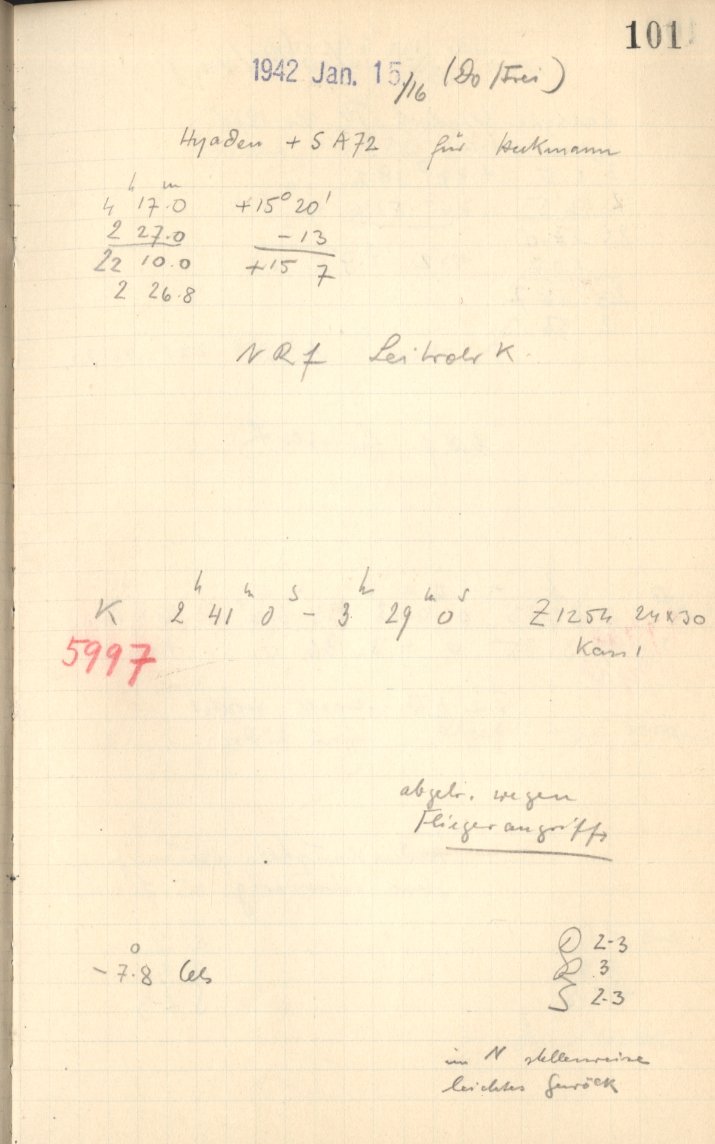 101
1942 Jan. 15/16 (Do/Frei)
Hyaden + SA72 für Heckmann
4h 17m.0 +15° 20'
2 27.0 -13
22 10.0 +15 7
2 26.8
NRf Leitrohr K.
K 2h 41m 0s - 3h 29m 0s Z1254 24x30
5997 Kass 1
abgebr. wegen
Fliegerangriffs
-7.8° Cels
Q 2-3
R 3
S 2-3
im N stellenweise
leichtes Gewölk